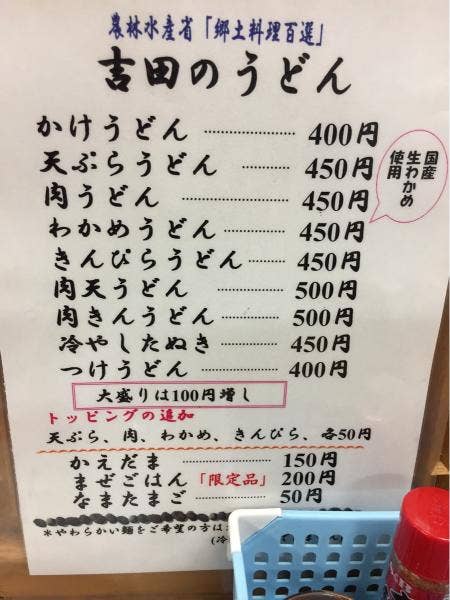 農林水産省「郷土料理百選」
吉田のうどん
かけうどん ………… 400円
天ぷらうどん ………… 450円
肉うどん ………… 450円
わかめうどん ………… 450円
きんぴらうどん ………… 450円
肉天うどん ………… 500円
肉きんうどん ………… 500円
冷やしたぬき ………… 450円
つけうどん ………… 400円
国産
生わかめ
使用
大盛りは100円増し
トッピングの追加
天ぷら、肉、わかめ、きんぴら、各50円
かえだま ………… 150円
まぜごはん「限定品」200円
なまたまご ………… 50円
*やわらかい麺をご希望の方は
(冷